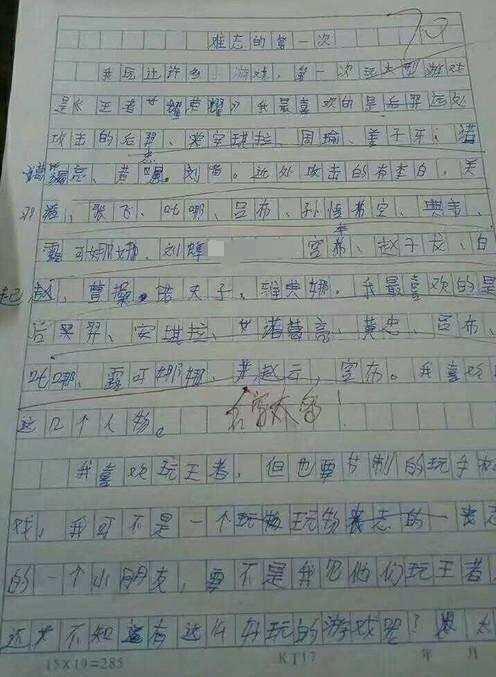 70
难忘的第一次
我玩过许多游戏,第一次玩大型游戏
是《王者荣耀》我最喜欢的是后羿远处
攻击的后羿、安琪拉、周瑜、姜子牙、诸
葛亮、黄忠、刘备。近处攻击的有李白、关
羽、张飞、吒娜、吕布、孙悟空、典韦、
露可娜娜、刘 空布、赵子龙、白
起 赵、曹操、诺夫子、雅典娜。我最喜欢的是
后羿、安琪拉、诸葛亮、黄忠、吕布、
吒娜、露可娜娜、赵云、空布。我喜欢
这几个人物。
名字太多!
我喜欢玩王者,但也要节制的玩手机
戏,我可不是一个玩物丧志的
的一个小朋克,要不是我见他们玩王者
还不知道有这么好玩的游戏呢?
15×19=285 KT17 年 月